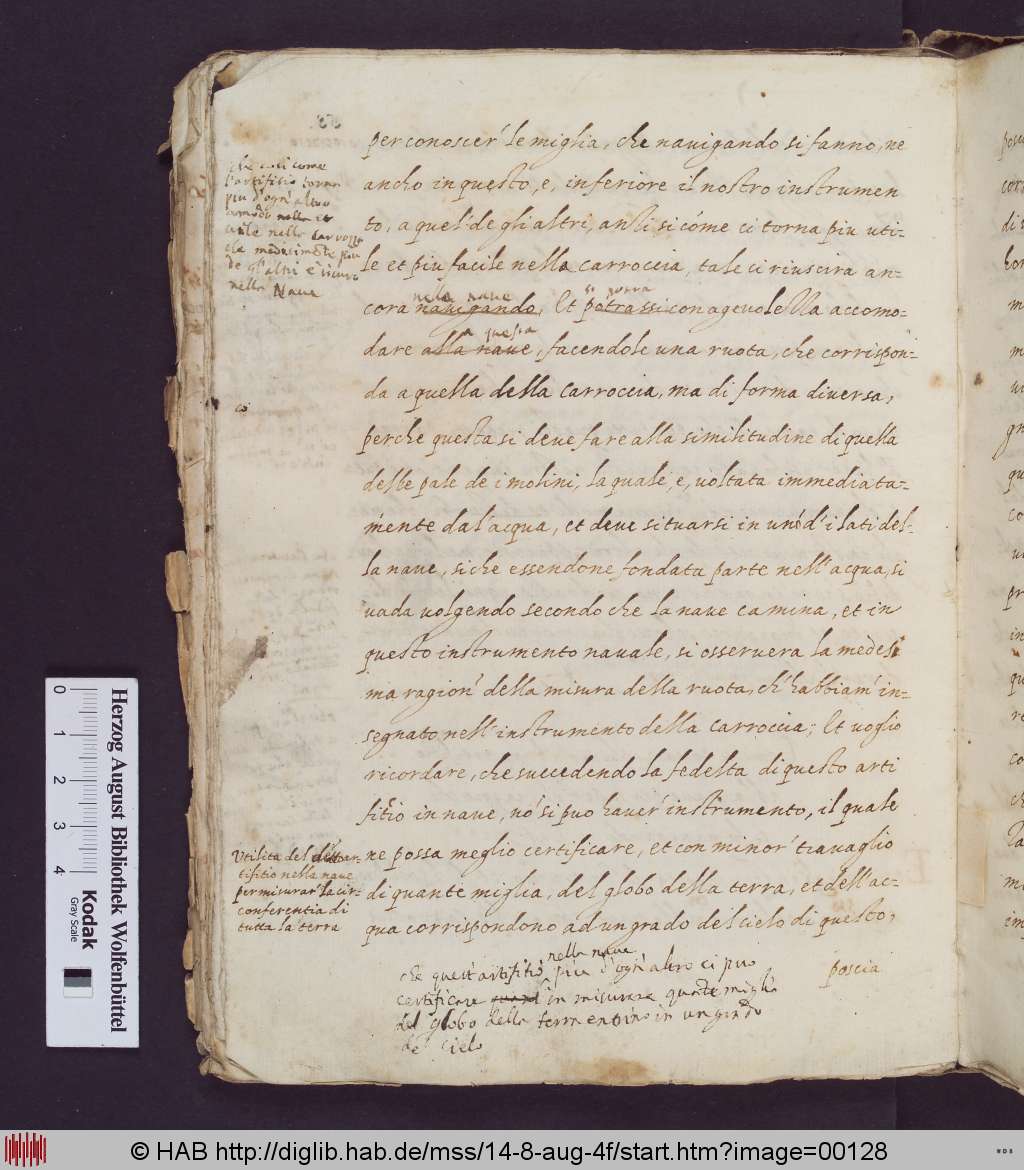 che così come
l'artifitio torna
piu d'ogn'altro
comodo nella et
utile nella carrozza
che medesimamente piu
de gl'altri è sicuro
nella Nave
per conoscer' le miglia, che navigando si fanno, ne
ancho in questo, e, inferiore il nostro instrumen
to, a quel' de gli altri, anzi si cóme ci torna piu uti-
le et piu facile nella carroccia, tale ci riuscira an-
nella nave si potra
cora navigando, Et potrassi con agevolezza accomo-
a questa
dare alla nave, facendole una ruota, che corrispon-
da a quella della carroccia, ma di forma diversa,
co
perche questa si deve fare alla similitudine di quella
delle pale de i molini, la quale, e, voltata immediata-
mente da l'acqua, et deve situarsi in uno d'i lati del-
la nave, siche essendone fondata parte nell'acqua, si
vada volgendo secondo che la nave camina, et in
questo instrumento navale, si osservera la medesi
ma ragion' della misura della ruota, ch'habbiam' in-
segnato nell'instrumento della carroccia; Et voglio
ricordare, che succedendo la fedelta di questo arti
fitio in nave, nó si puo haver' instrumento, il quale
ne possa meglio certificare, et con minor' travaglio
di quante miglia, del globo della terra, et dell'ac-
qua corrispondono ad un grado del cielo di questo,
Utilita del ar-
tifitio nella nave
per misurar' la cir-
conferentia di
tutta la terra
poscia
nella nave
che quest'artifitio piu d'ogn'altro ci puo
certificare in misurare quante miglia
del globo della terra entrino in un grado
del cielo
0
1
2
3
4
Herzog August Bibliothek Wolfenbüttel
Kodak
Gray Scale
© HAB http://diglib.hab.de/mss/14-8-aug-4f/start.htm?image=00128